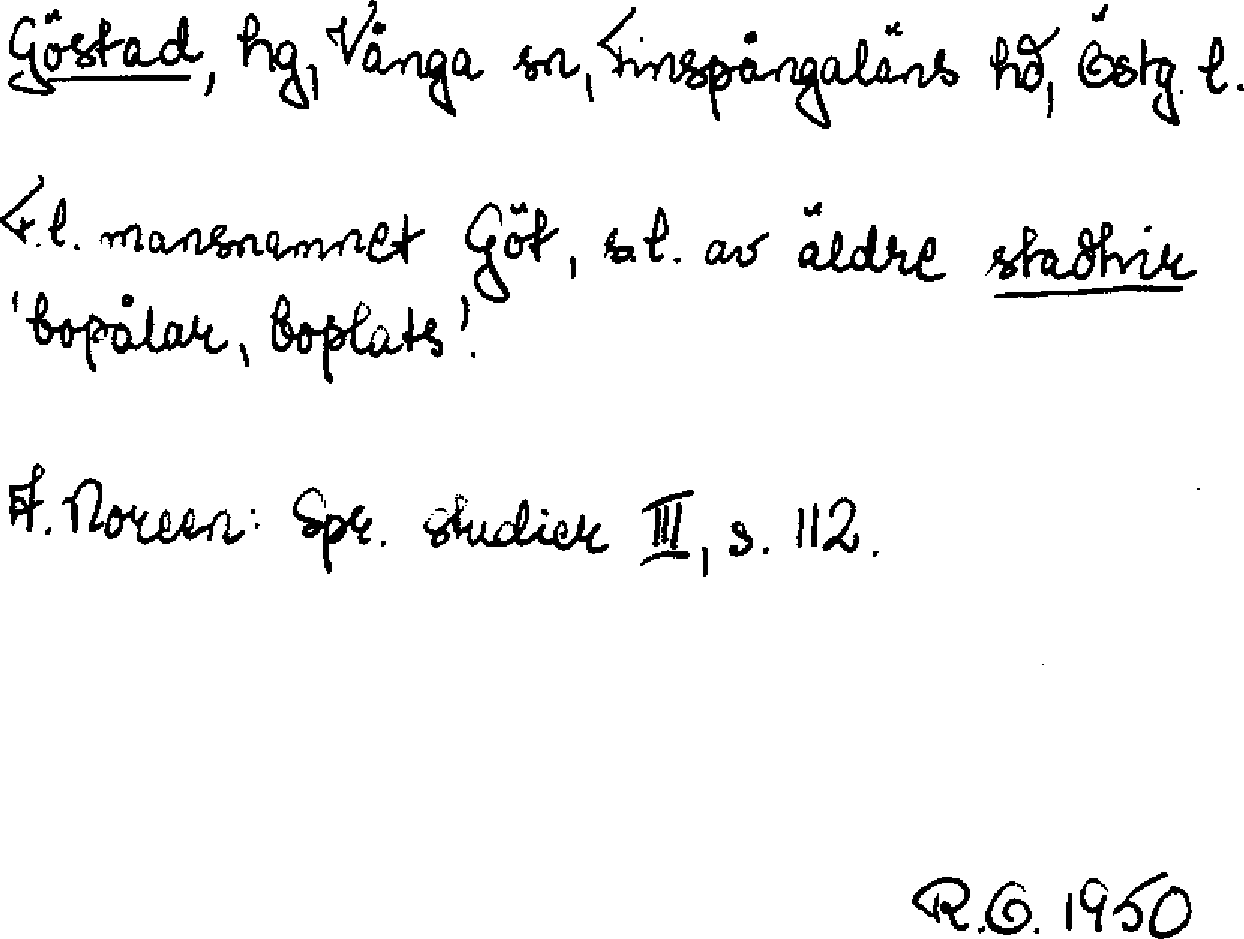 Göstad, hg, Vånga sn, Finspångaläns hd, Östg. l.
F.l. mansnamnet Göt, s.l. av äldre staðhir
'bopålar, boplats'.
A. Noreen: Spr. studier III, s. 112.
R.O. 1950